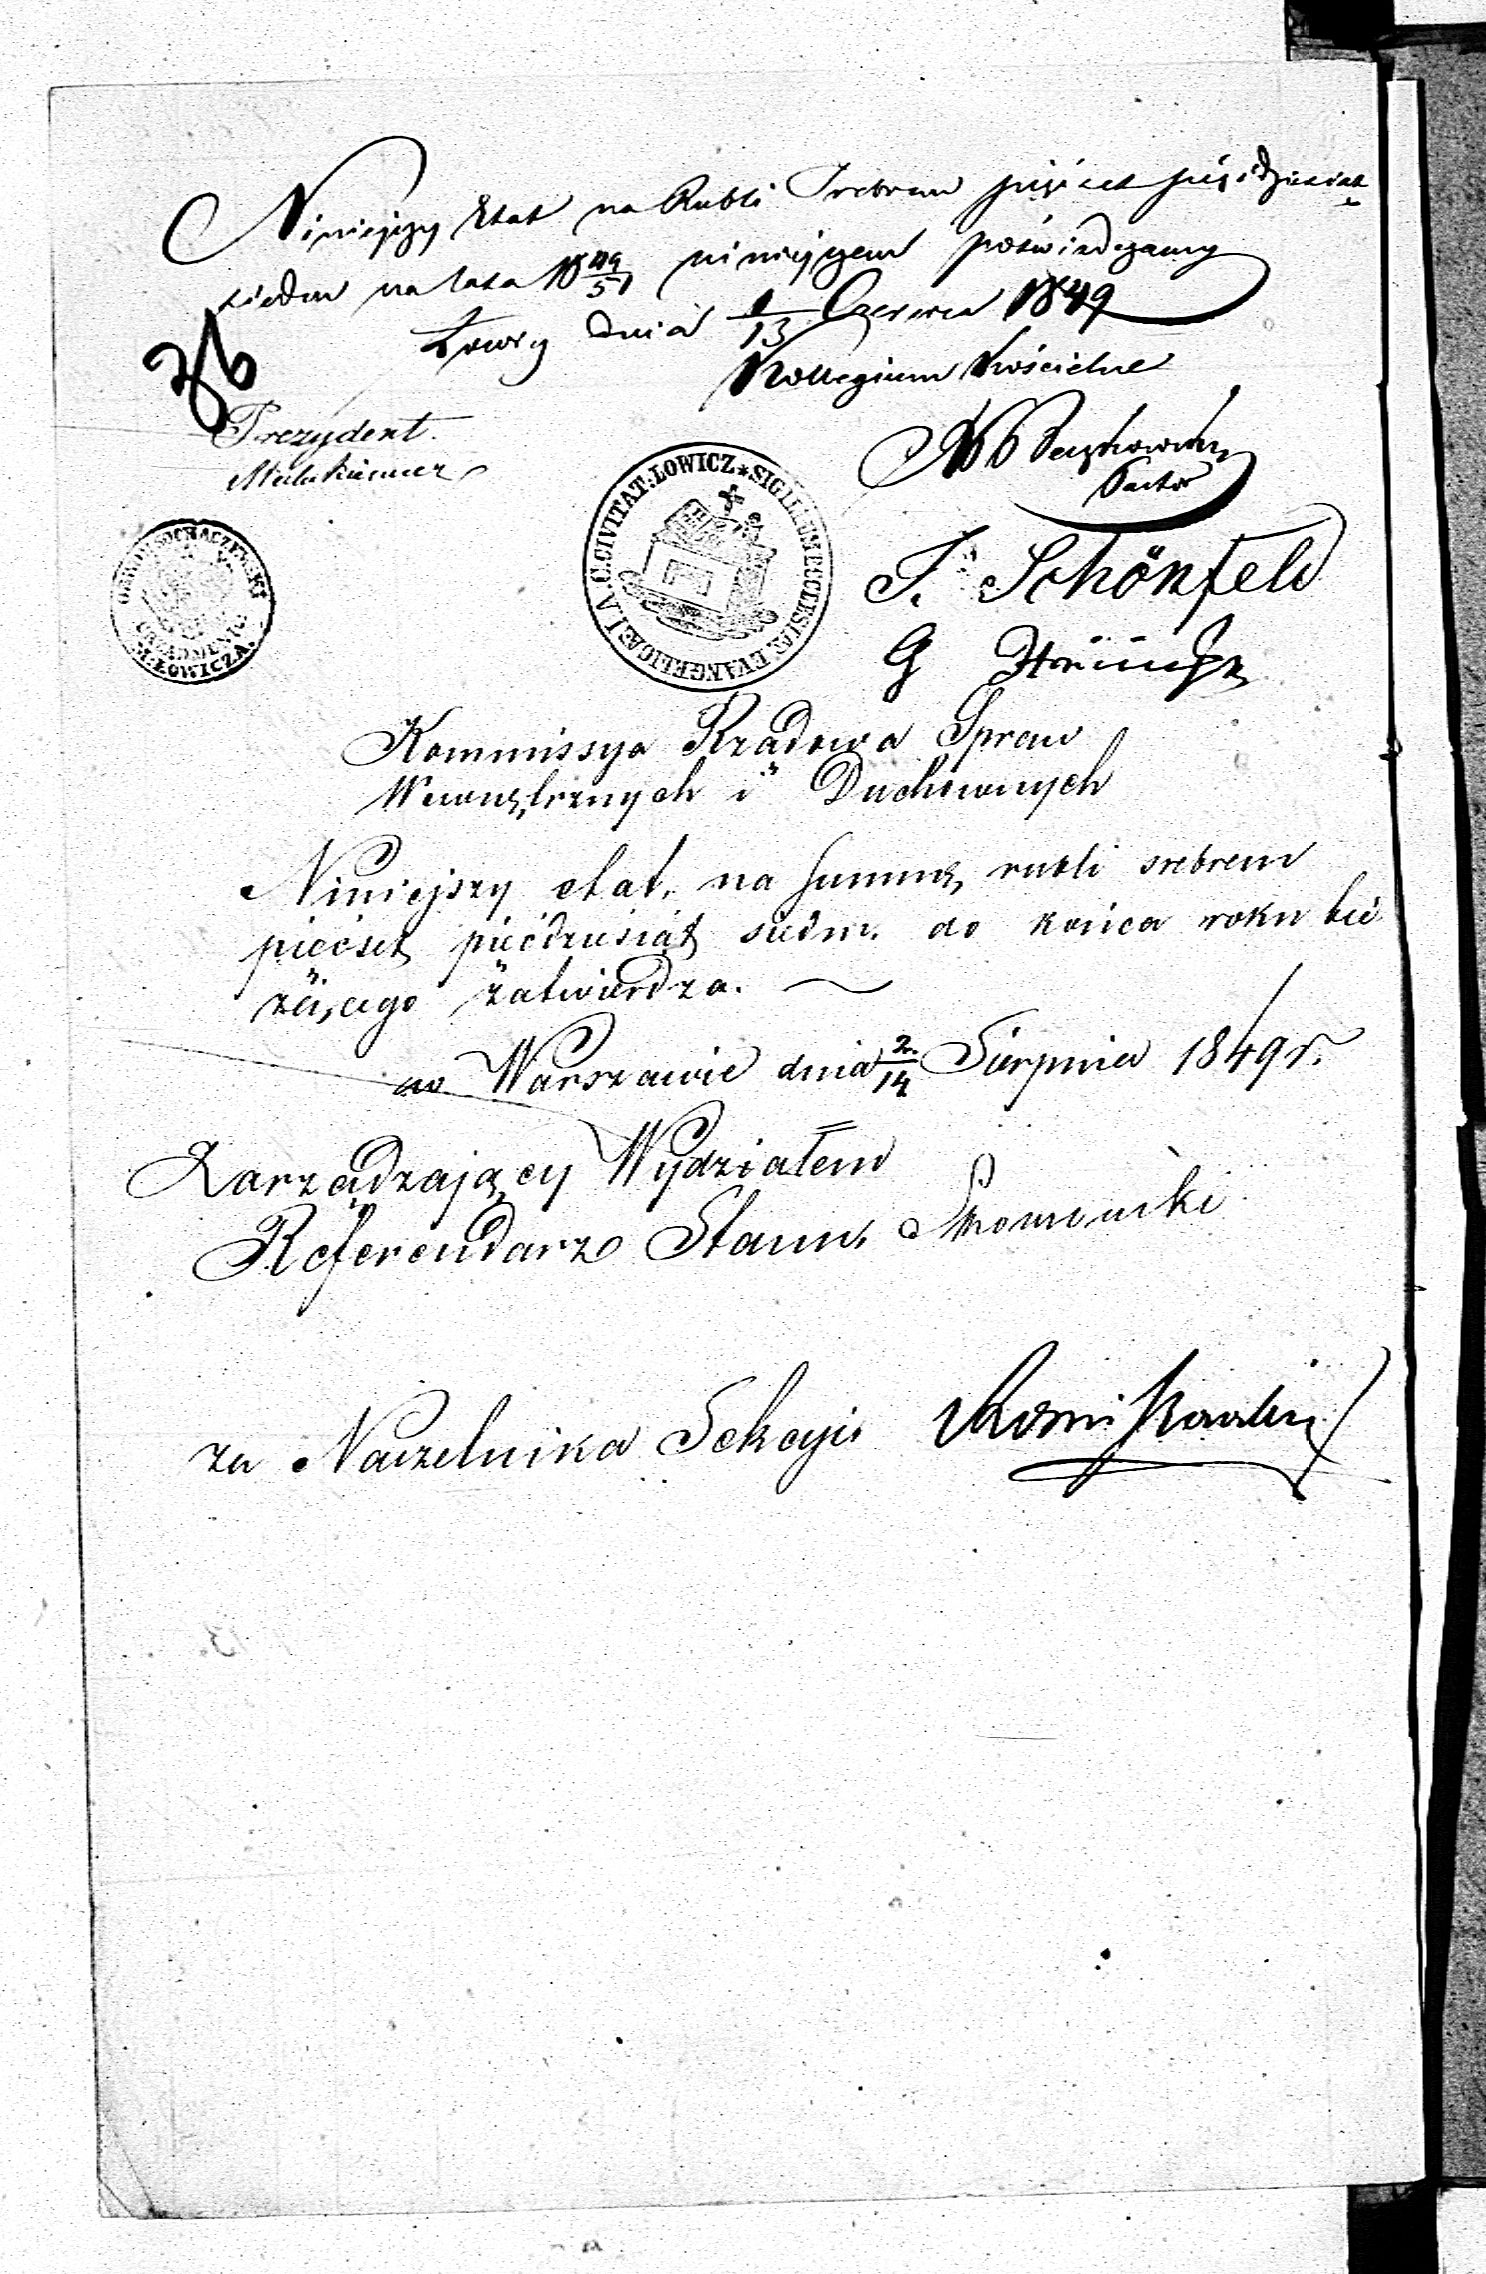 Niniejszy Etat na Rubli Srebrem pięćset pięćdziesiąt
siedm na lata 18 49/51 niniejszem poświadczamy
Łowicz dnia 1/13 Czerwca 1849
Kollegium Kościelne
Prezydent
Pastor
SIGILLUM ECCLESIÆ EVANGELICÆ I. A. C. CIVITAT. LOWICZ
OKRĘG SOCHACZEWSKI
URZĄD MUNIC.
M. ŁOWICZA
Schönfeld
G
Kommissya Rządowa Spraw
Wewnętrznych i Duchownych
Niniejszy etat, na summę rubli srebrem
pięćset pięćdziesiąt siedm. do końca roku bie
żącego zatwierdza.
w Warszawie dnia 2/14 Sierpnia 1849 r.
Zarządzający Wydziałem
Referendarz Stanu,
za Naczelnika Sekcyi